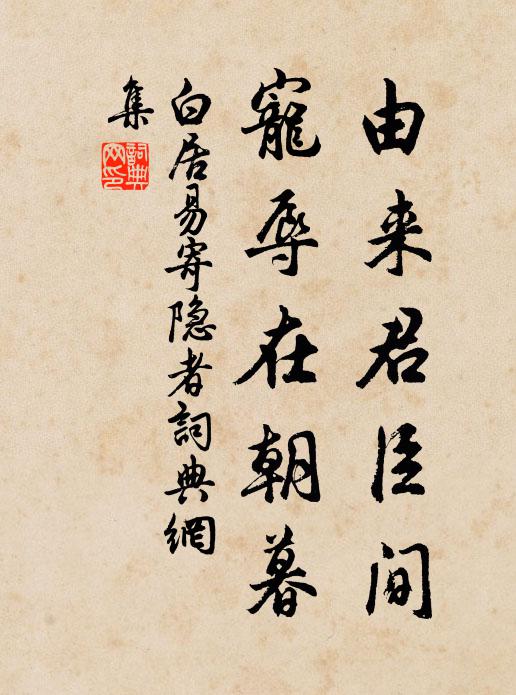 由来君臣间
寵辱在朝暮
白居易寄隐者詞典網
集
詞典
网印